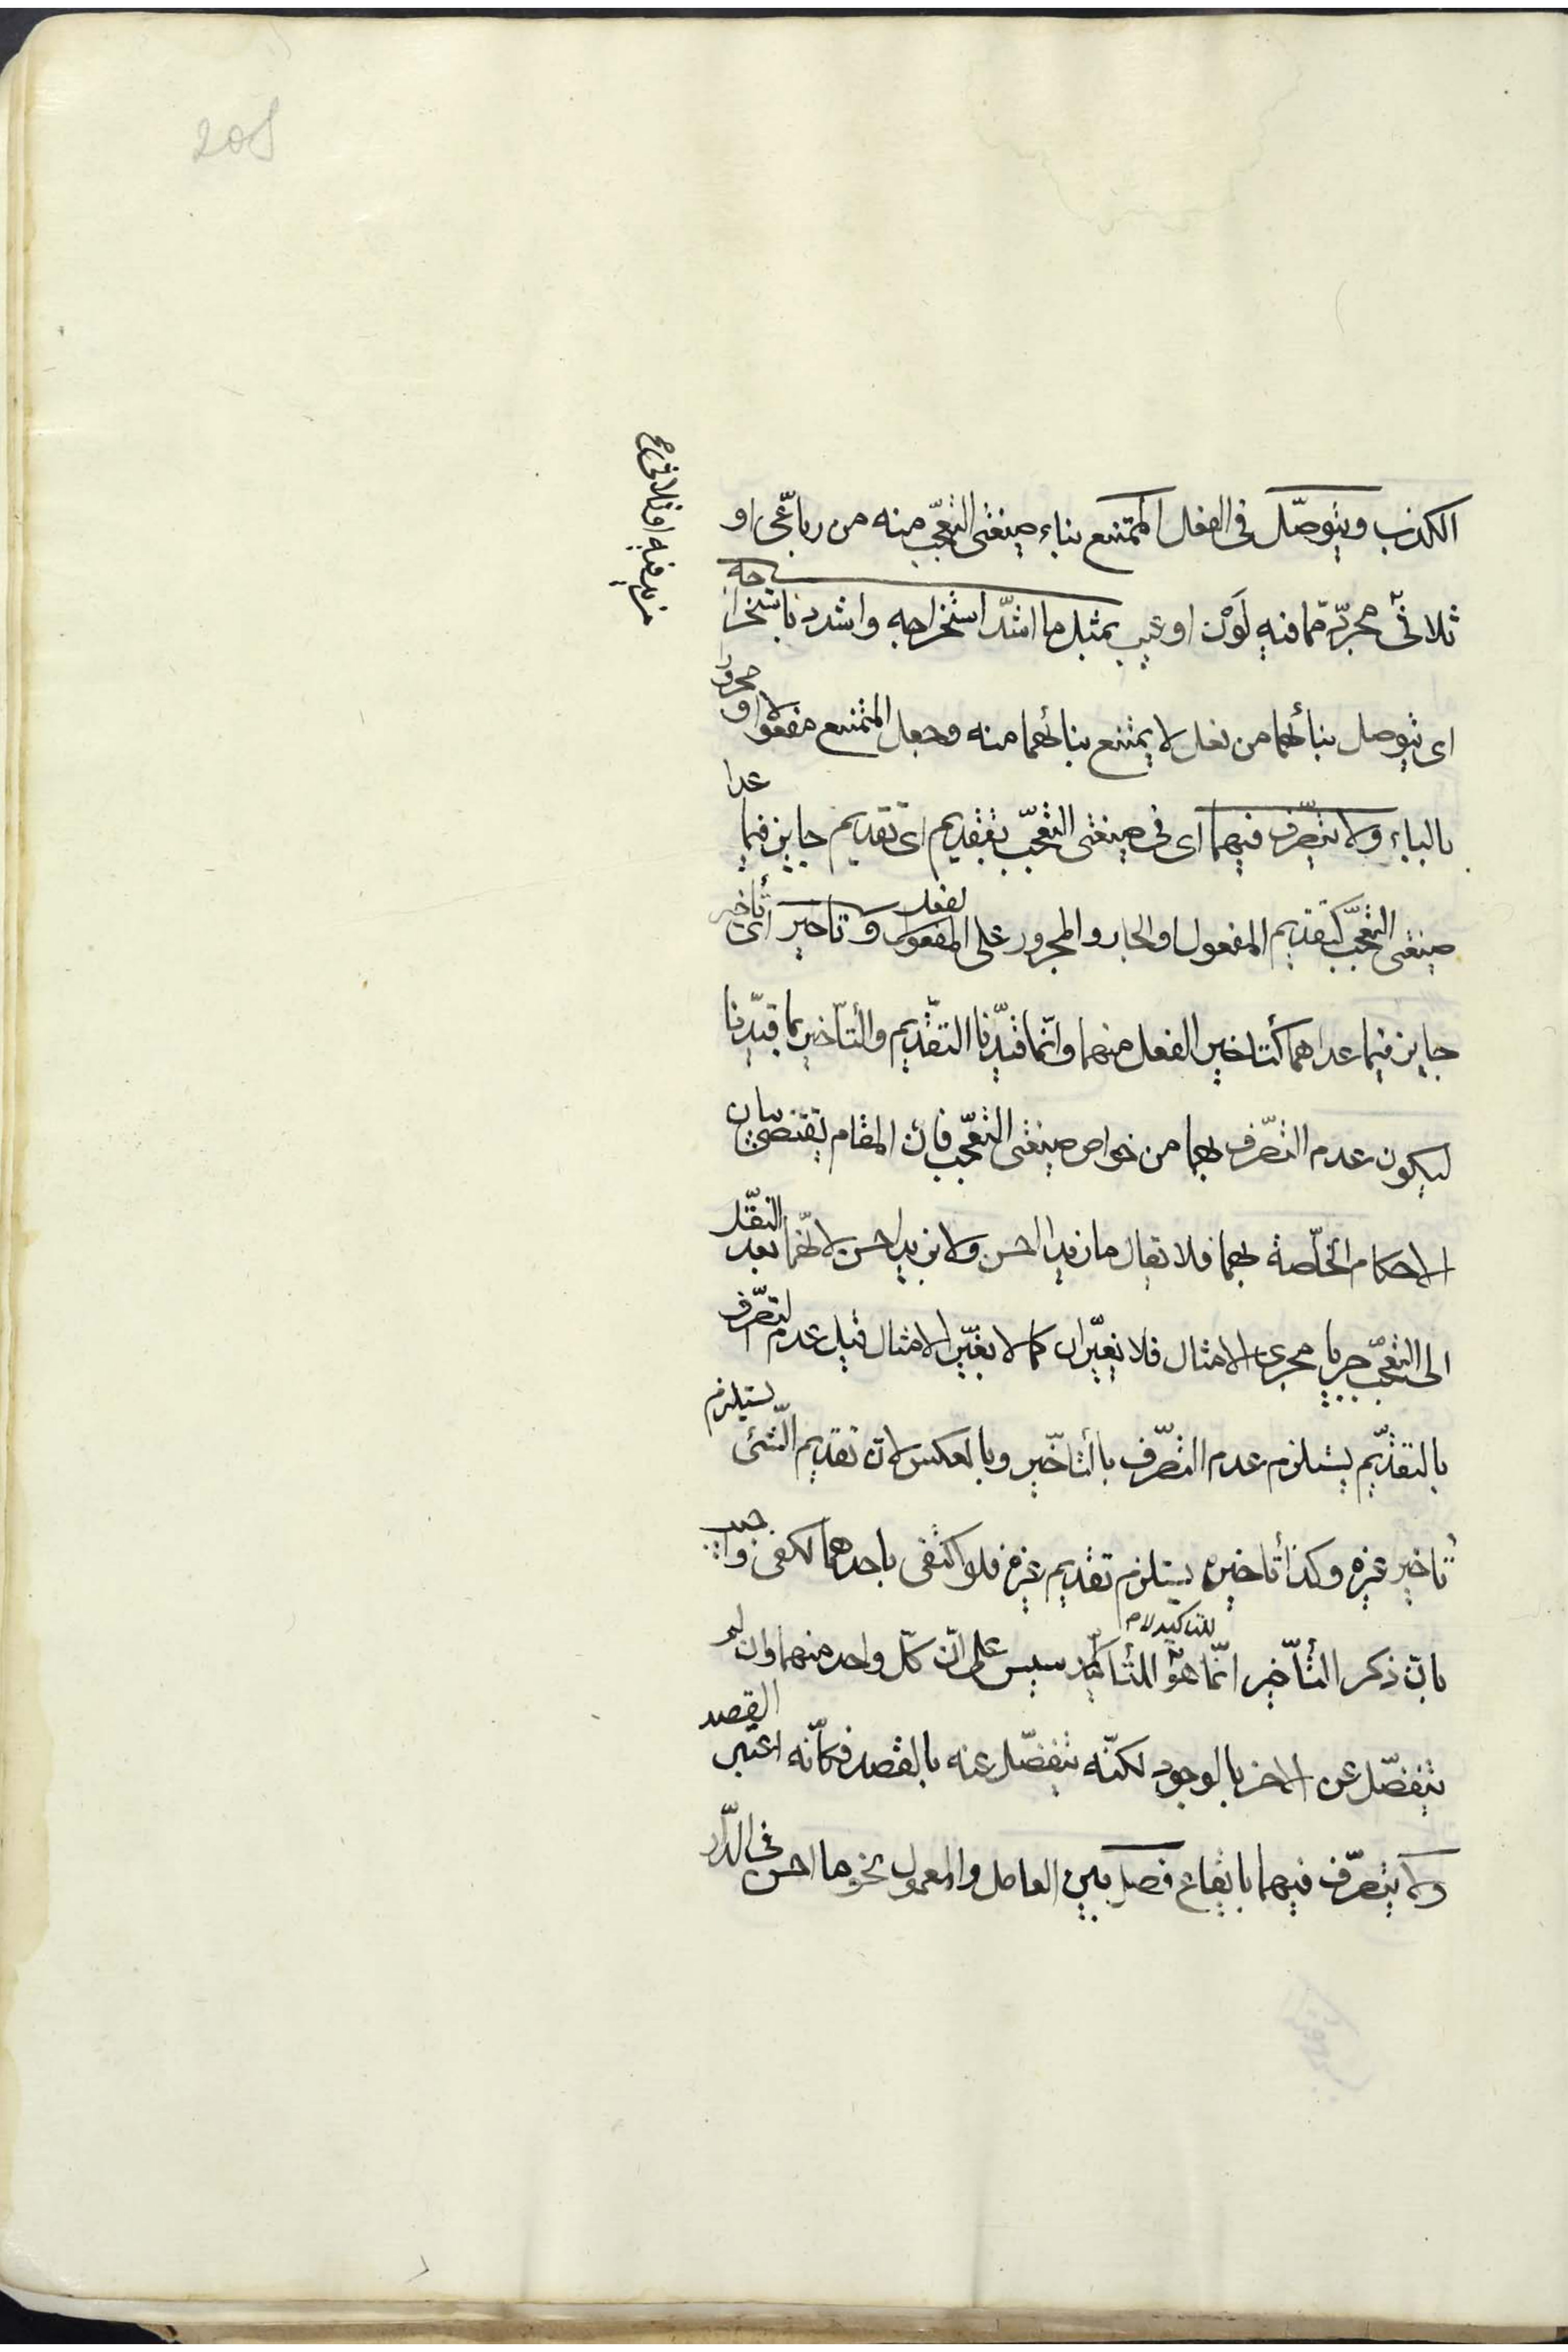 208
الكذب ويتوصّل فى الفعل الممتنع بناء صيغتى التعجّب منه من رباعّى او
مزيد فيه او ثلاثى
ثلاثىّ مجرّد ممّا فيه لَوْن او عيب بمثل ما اشدّ استخراجه واشدد باستخراجه
اى يتوصل ببنائهما من فعل لا يمتنع بنائهما منه وجعل الممتنع مفعولا او مجرور
بالباء ولا يتصّرف فيهما اى فى صيغتى التعجّب بتقديم اى تقديم جايز فيما عدا
صيغتى التعجّب كتقديم المفعول او الجار والمجرور على الفعل وتاخير اى تأخير
جايز فيما عداهما كتأخير الفعل منهما وانّما قيّدنا التقديم والتأخير بما قيّدنا
ليكون عدم التصّرف بهما من خواص صيغتى التعجّب فانّ المقام يقتضى بيان
الاحكام الخاصّة بهما فلا يقال ما زيدا احسن ولا بزيد احسن لانّهما بعد النقل
الى التعجّب جريا مجرى الامثال فلا يغيّران كما لا يغيّر الامثال قيل عدم التصّرف
بالتقديم يستلزم عدم التصّرف بالتأخير وبالعكس لانّ تقديم الشّىء يستلزم
تأخير غيره وكذا تأخيره يستلزم تقديم غيره فلو اكتفى باحدهما لكفى واجيب
بانّ ذكر التأخير انّما هو للتأكيد وليس على انّ كلّ واحد منهما وان لم
للتاكيد
ينفصّل عن الاخر بالوجود لكنّه ينفصّل عنه بالقصد فكأنّه اعتبر القصد
ولا يتصّرف فيهما بايقاع فصل بين العامل والمعمول نحو ما احسن فى الدّار